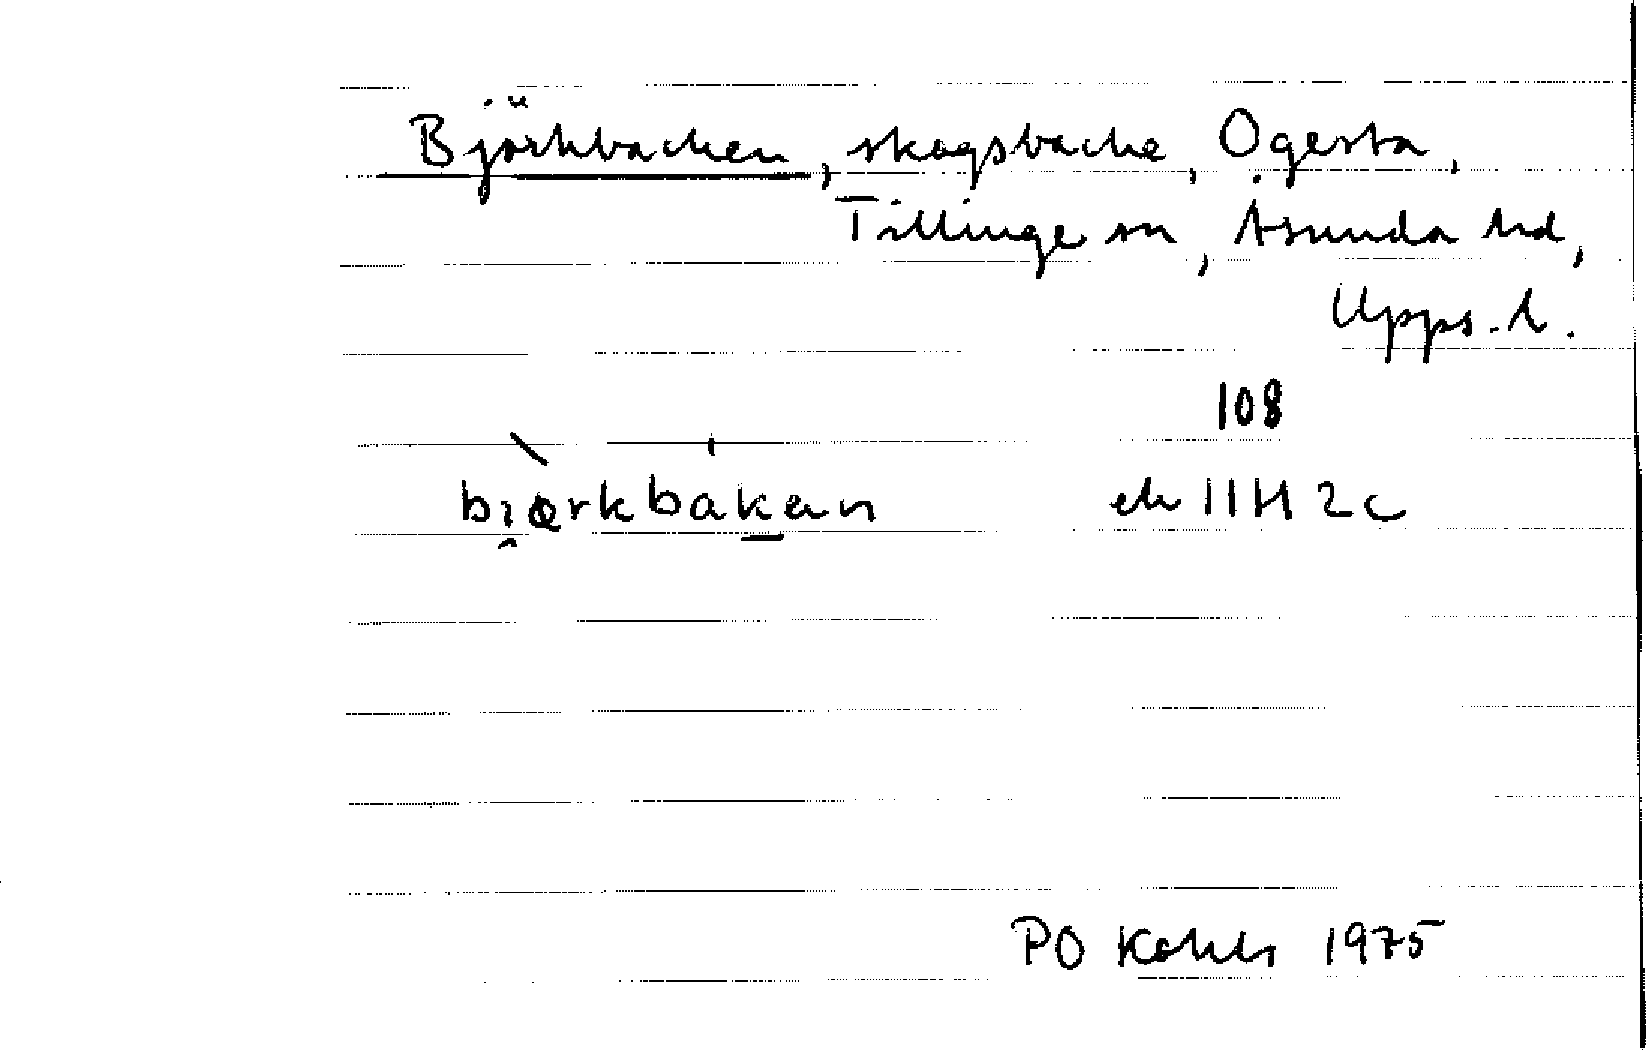 Björkbacken, skogsbacke, Ögesta,
Tillinge sn, Åsunda hd,
Upps. l.
108
bjœrkbakєn ek 11H 2c
PO 1975